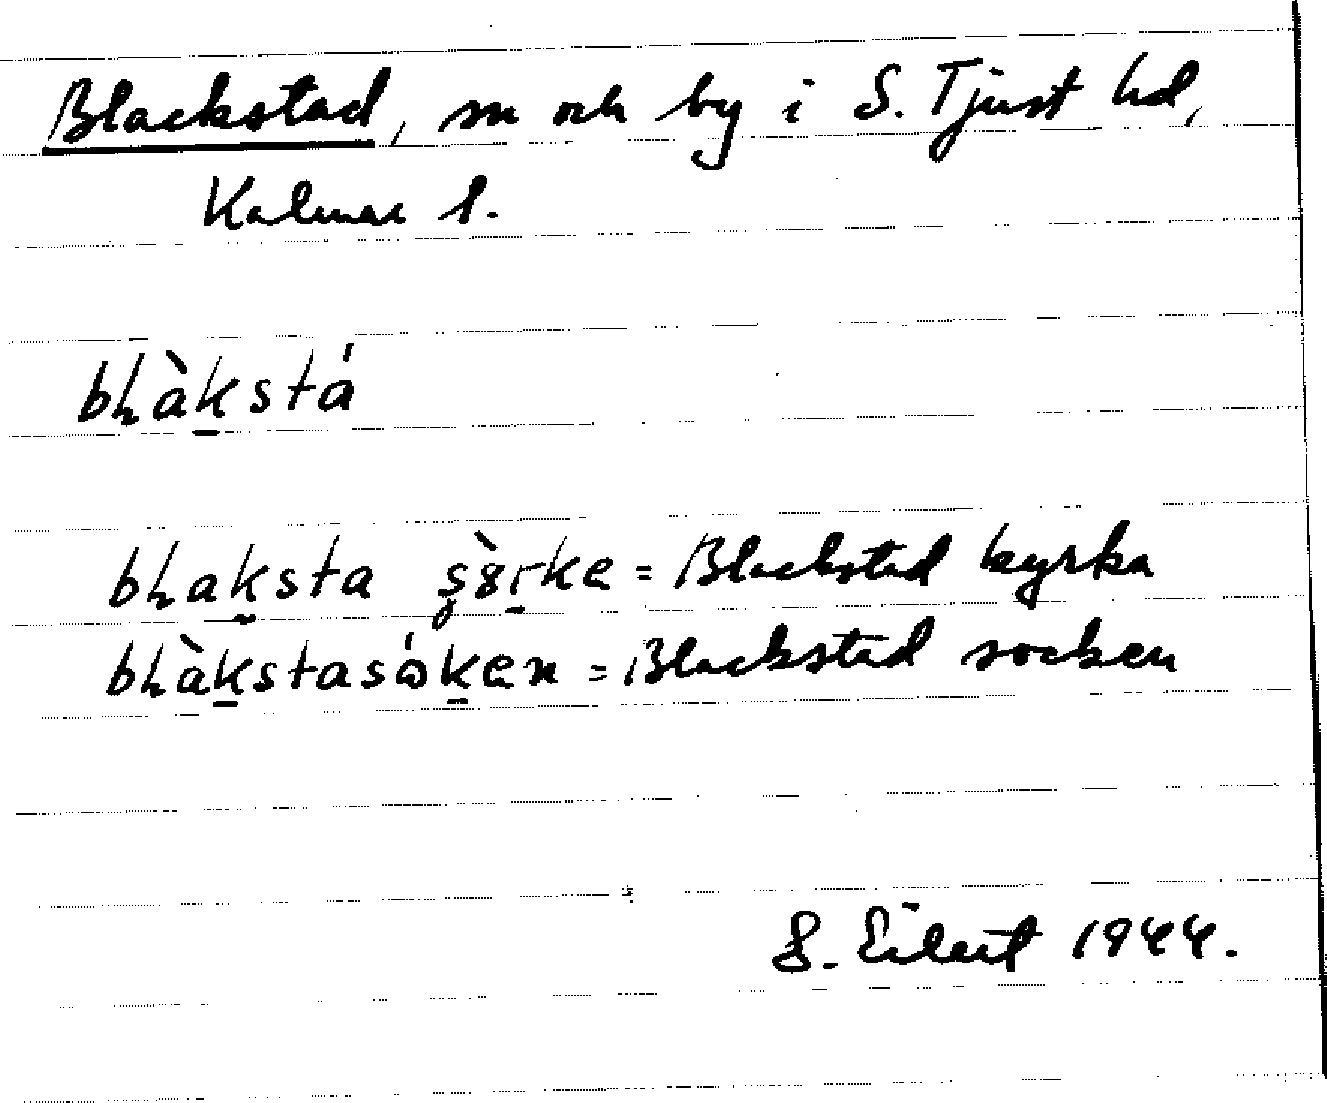 Blackstad, sn och by i S. Tjust hd,
Kalmar l.
bḷàk̠stá
bḷak̠sta ʂ𝈿r̠ke = Blackstad kyrka
bḷàk̠stasók̠en = Blackstad socken
S. Eilert 1944.